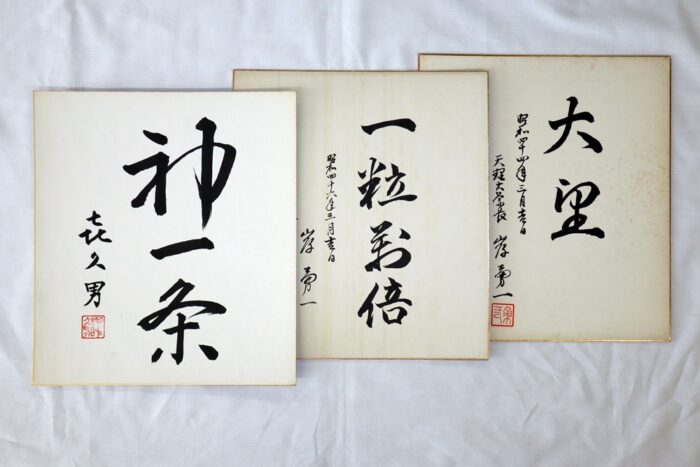 神一条
㐂久男
一粒萬倍
昭和四十六年三月吉日
岸勇一
大望
昭和四十四年三月吉日
天理大学長 岸勇一